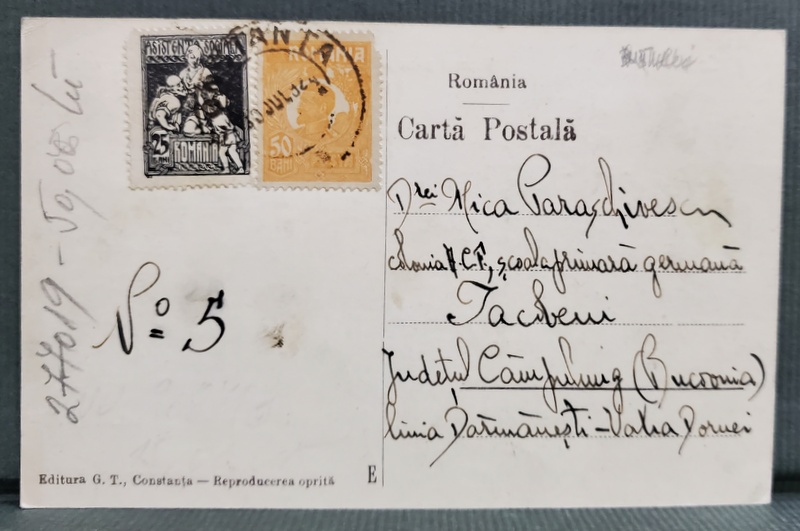 ASISTENȚA SOCIALĂ
25
BANI
ROMANIA
ROMANIA
50
BANI
JUL
România
Cartă Postală
Drei Mica Paraschivescu
Colonia P.C.F., școala primară germană
Iacobeni
Județul Câmpulung (Bucovina)
linia Dărmănești - Vatra Dornei
No 5
277019 - 50,00 lei
Editura G. T., Constanța — Reproducerea oprită
E